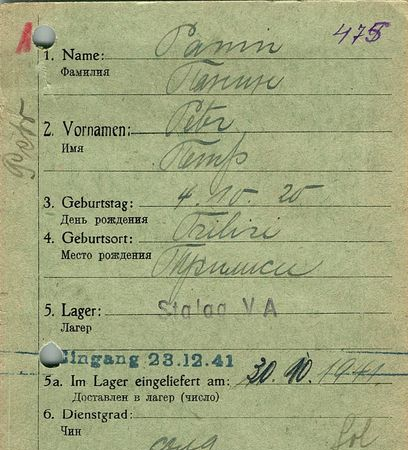 475
1. Name: Panin
Фамилия Панин
2. Vornamen: Petr
Имя Петр
3. Geburtstag: 4.10.20
День рождения
4. Geburtsort:
Место рождения
5. Lager: Stalag VA
Лагер
Eingang 23.12.41
5a. Im Lager eingeliefert am: 30.10.1941
Доставлен в лагер (число)
6. Dienstgrad: Sol
Чин